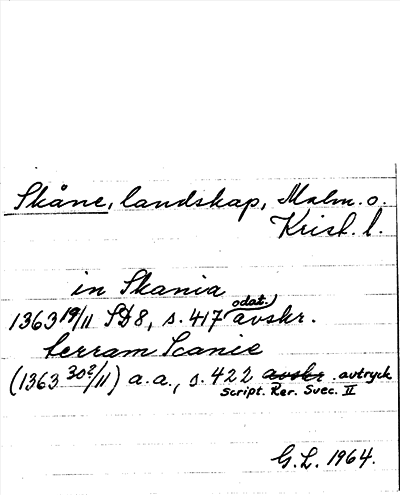 Skåne, landskap, Malm. o.
Krist. l.
in Skania
odat.)
1363 19/11 SD8, s. 417 avskr.
terram Scanie
(1363 30?/11) a.a., s. 422 avskr. avtryck
Script. Rer. Svec. II
G.L. 1964.